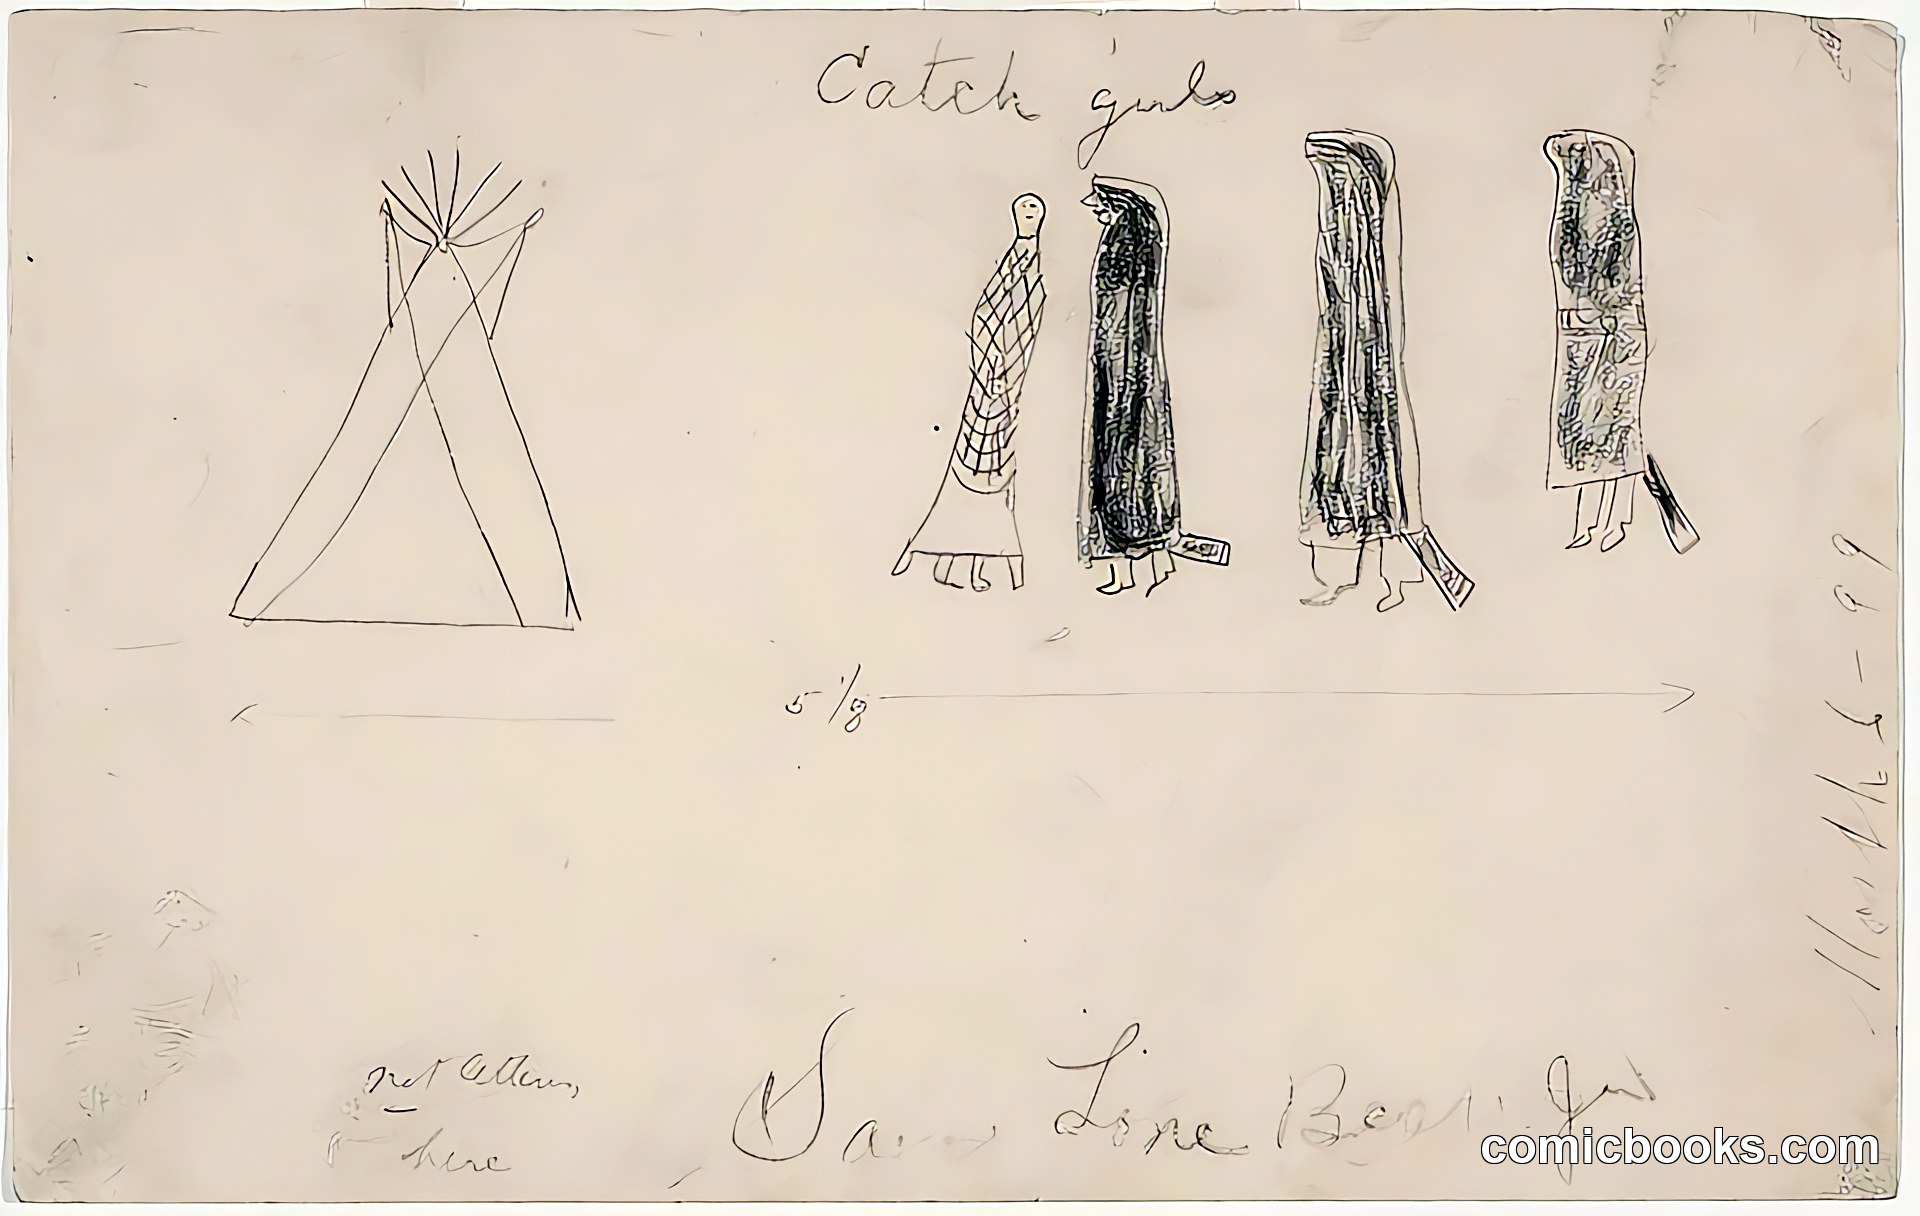 Catch girls
5 1/8
not letters
here
Sam Lone Bear. Jr
comicbooks.com